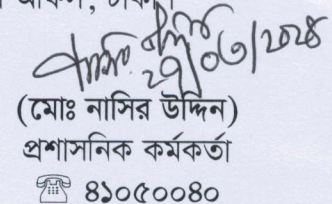 ২৭/০৩/২০২৪
(মোঃ নাসির উদ্দিন)
প্রশাসনিক কর্মকর্তা
☎ ৪১০৫০০৪০